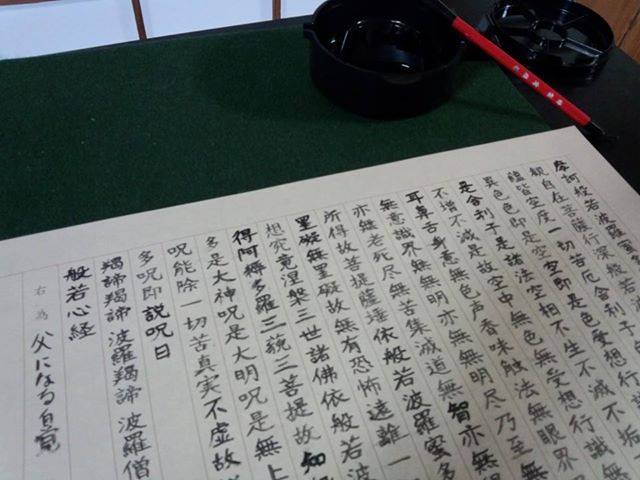 摩訶般若波羅蜜多
観自在菩薩行深般若
蘊皆空度一切苦厄舎利子
異色色即是空空即是色受想行
是舎利子是諸法空相不生不滅不垢
不増不減是故空中無色無受想行識
耳鼻舌身意無色声香味触法無眼界
無意識界無無明亦無無明尽乃至無
亦無老死尽無苦集滅道無智亦無得
所得故菩提薩埵依般若波羅蜜多
罣礙無罣礙故無有恐怖遠離一
想究竟涅槃三世諸佛依般若波
得阿耨多羅三藐三菩提故知
多是大神呪是大明呪是無上
呪能除一切苦真実不虚故
多呪即説呪曰
羯諦羯諦 波羅羯諦 波羅僧
般若心経
右為 父になる自覚